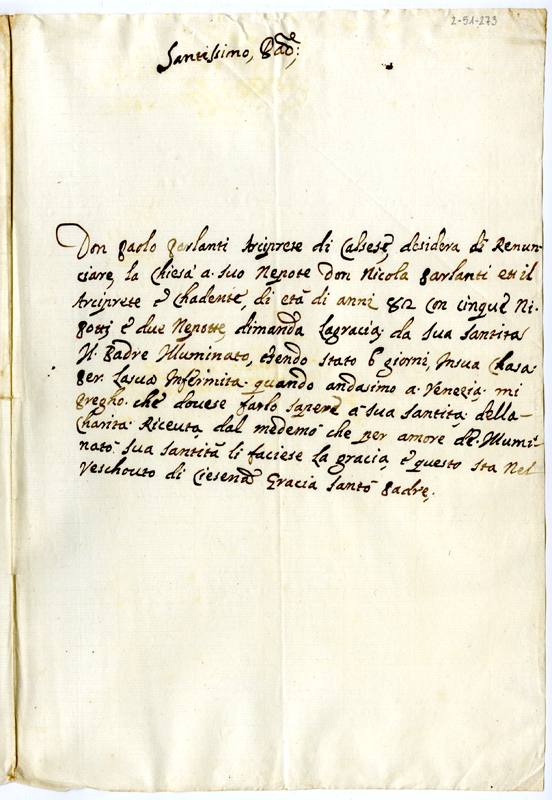 2-51-273
Santissimo, Padre:
Don Paolo Parlanti Arciprete di Calsese, desidera di Renun-
ciare, la Chiesa a suo Nepote Don Nicola Parlanti et il
Arciprete è Chadente, di età di anni 82 con cinque Ni-
potj è due Nepotte, dimanda la gracia, da Sua Santita
Il Padre Illuminato, esendo stato 6 giorni, In sua Chasa
per. la sua Infermita. quando andasimo a. Venezia; mi
pregho. che dovese farlo sapere a sua santita della-
Charita. Riceuta, dal medemo che per amore de. Illumi-
nato sua santita li faciese la gracia, è questo sta Nel
Veschouto di Ciesena Gracia Santo Padre,